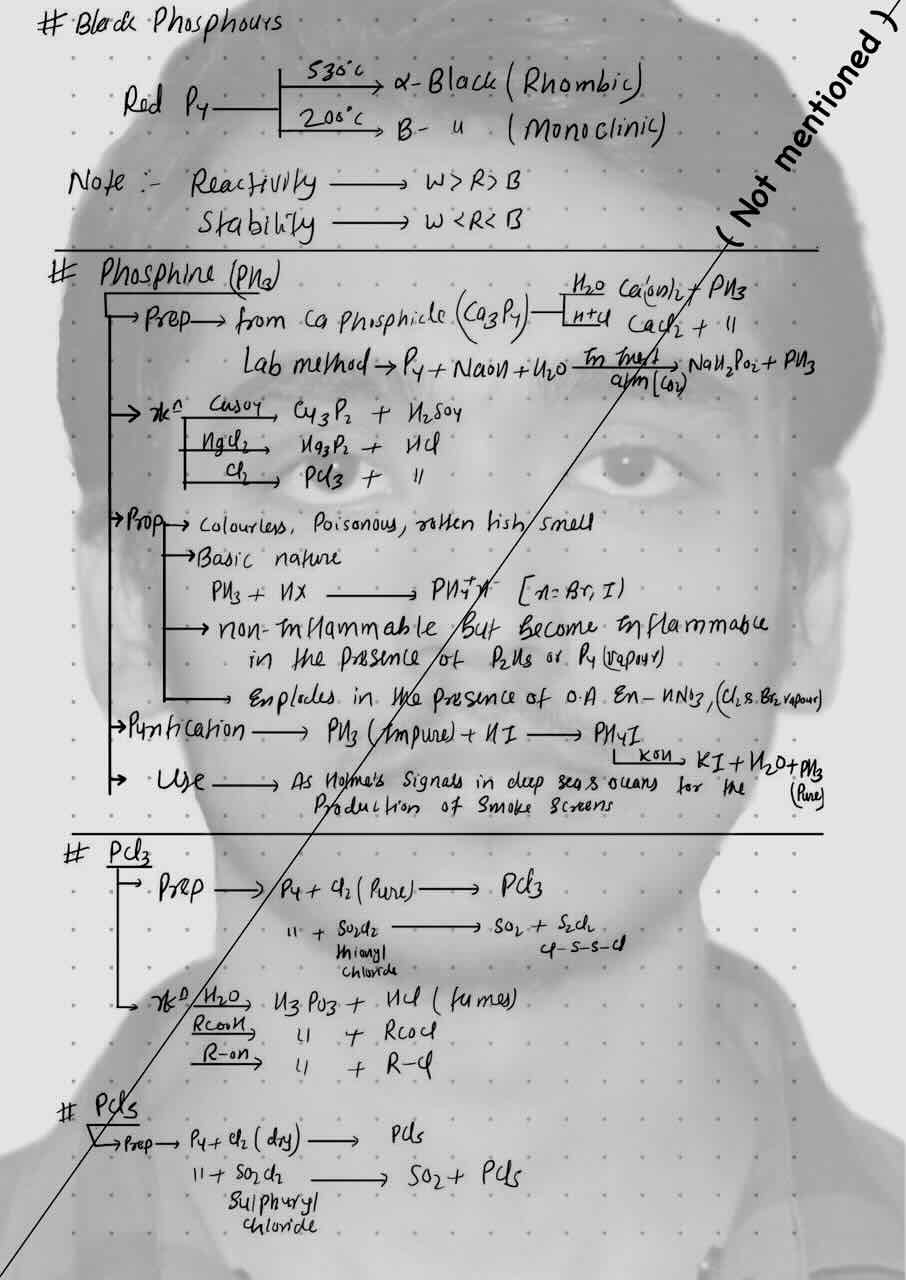 # Black Phosphours
Red P4 530°c → α-Black (Rhombic)
200°c → β- " (Monoclinic)
( Not mentioned )
Note :- Reactivity → W > R > B
Stability → W < R < B
# Phosphine (PH3)
→ Prep → from Ca Phosphide (Ca3P2) H2O Ca(OH)2 + PH3
HCl CaCl2 + "
Lab method → P4 + NaOH + H2O In Inert atm (CO2) → NaH2PO2 + PH3
→ Rxn CuSO4 → Cu3P2 + H2SO4
HgCl2 → Hg3P2 + HCl
Cl2 → PCl3 + "
→ Prop → Colourless, Poisonous, rotten fish smell
→ Basic nature
PH3 + HX → PH4+X- [X = Br, I)
→ non-Inflammable But Become Inflammable
in the presence of P2H4 or P4 (vapour)
→ Explodes in the presence of O.A. Ex- HNO3, (Cl2 & Br2 vapour)
→ Purification → PH3 (Impure) + HI → PH4I
KOH → KI + H2O + PH3
(Pure)
→ Use → As Holme's Signals in deep seas & oceans for the
Production of Smoke Screens
# PCl3
→ Prep → P4 + Cl2 (Pure) → PCl3
" + SO2Cl2 → SO2 + S2Cl2
thionyl Cl-S-S-Cl
chloride
→ Rxn H2O → H3PO3 + HCl (fumes)
RCOOH → " + RCOCl
R-OH → " + R-Cl
# PCl5
→ Prep → P4 + Cl2 (dry) → PCl5
" + SO2Cl2 → SO2 + PCl5
Sulphuryl
chloride